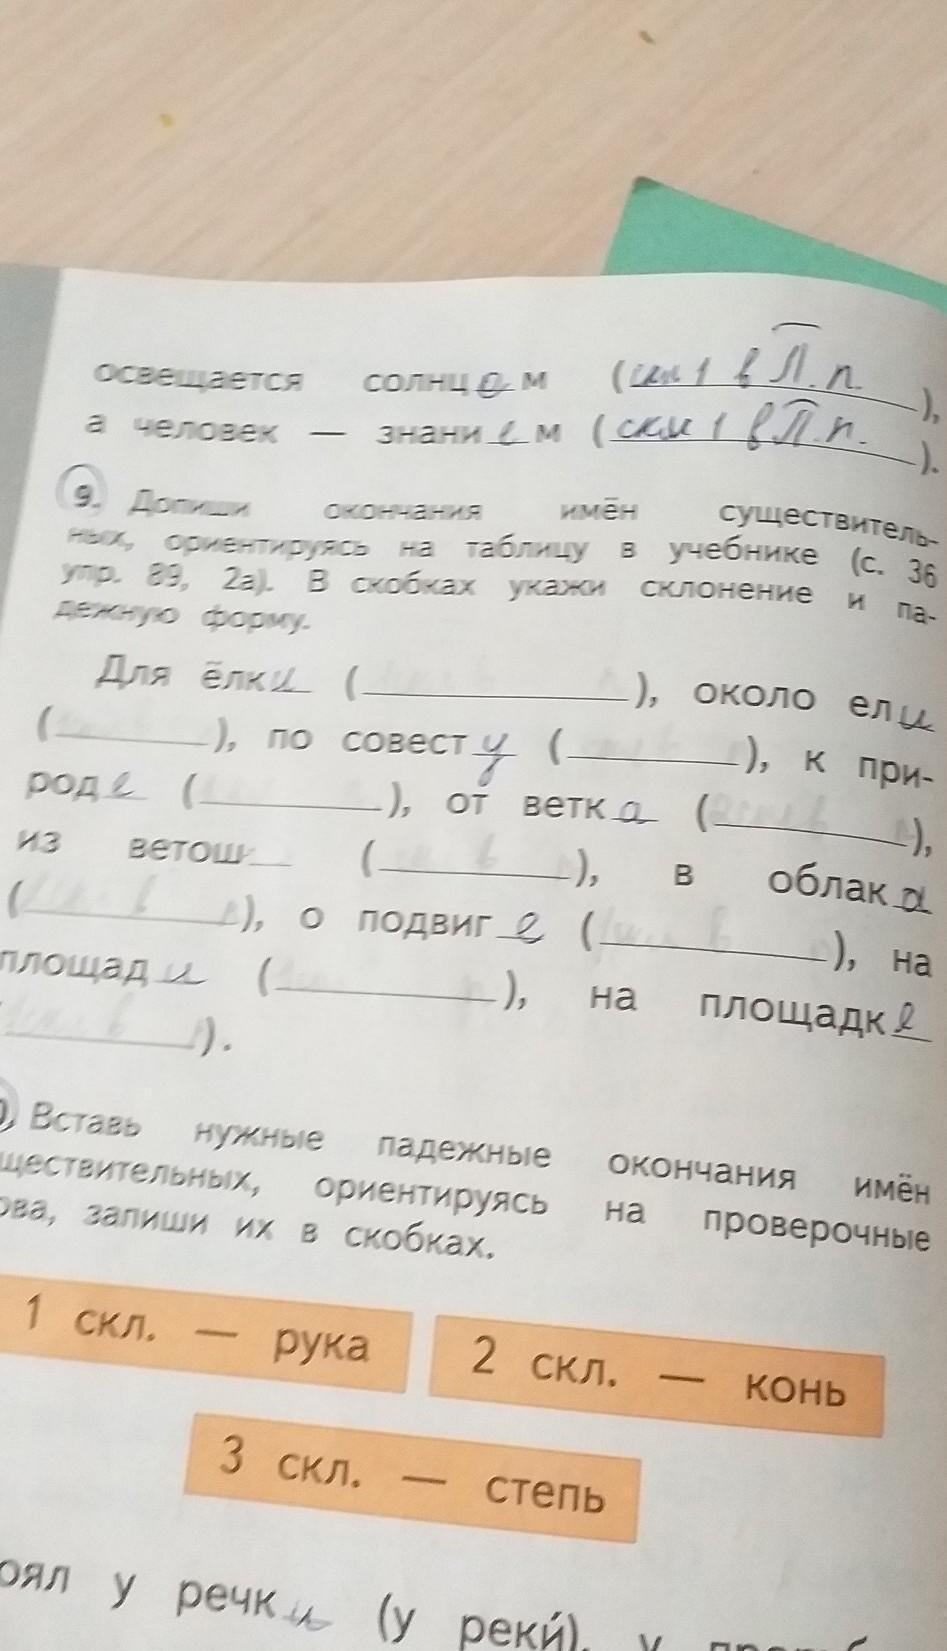 освещается солнцем (скл 1 в П.п.),
а человек — знанием (скл 1 в П.п.).
9. Допиши окончания имён существитель-
ных, ориентируясь на таблицу в учебнике (с. 36
упр. 89, 2а). В скобках укажи склонение и па-
дежную форму.
Для ёлки (____), около ели
(____), по совесту (____), к при-
роде (____), от ветка (____),
из ветош__ (____), в облака
(____), о подвиге (____), на
площади (____), на площадке
(____).
Вставь нужные падежные окончания имён
ществительных, ориентируясь на проверочные
ова, запиши их в скобках.
1 скл. — рука 2 скл. — конь
3 скл. — степь
оял у речки (у реки́), у